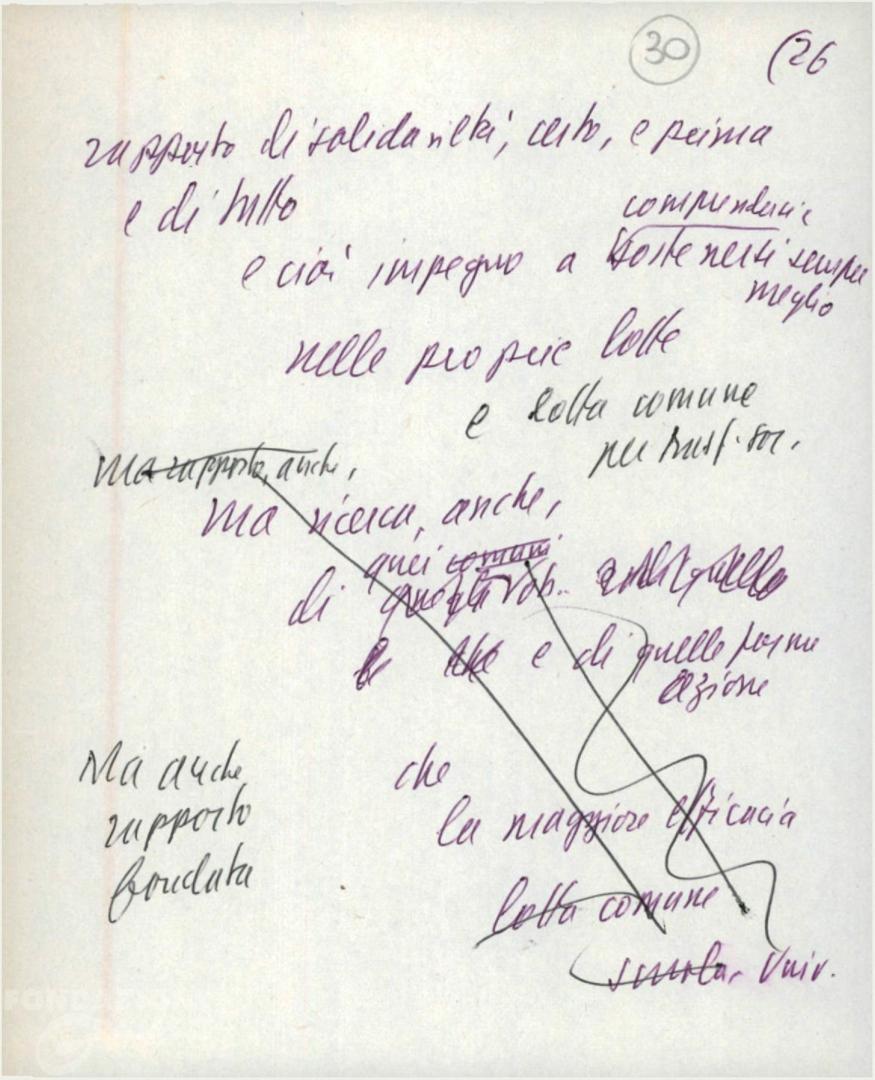 30 (26
rapporto di solidarietà, certo, e prima
e di tutto
comprendersi e
e cioè impegno a sostenersi sempre
meglio
nelle proprie lotte
e lotta comune
per trasf. soc.
Ma rapporto, anche,
Ma ricerca, anche,
quei comuni
di
e di quelle forme
azione
Ma anche
rapporto
fondato
che
la maggiore efficacia
lotta comune
scuola, Univ.
FONDAZIONE